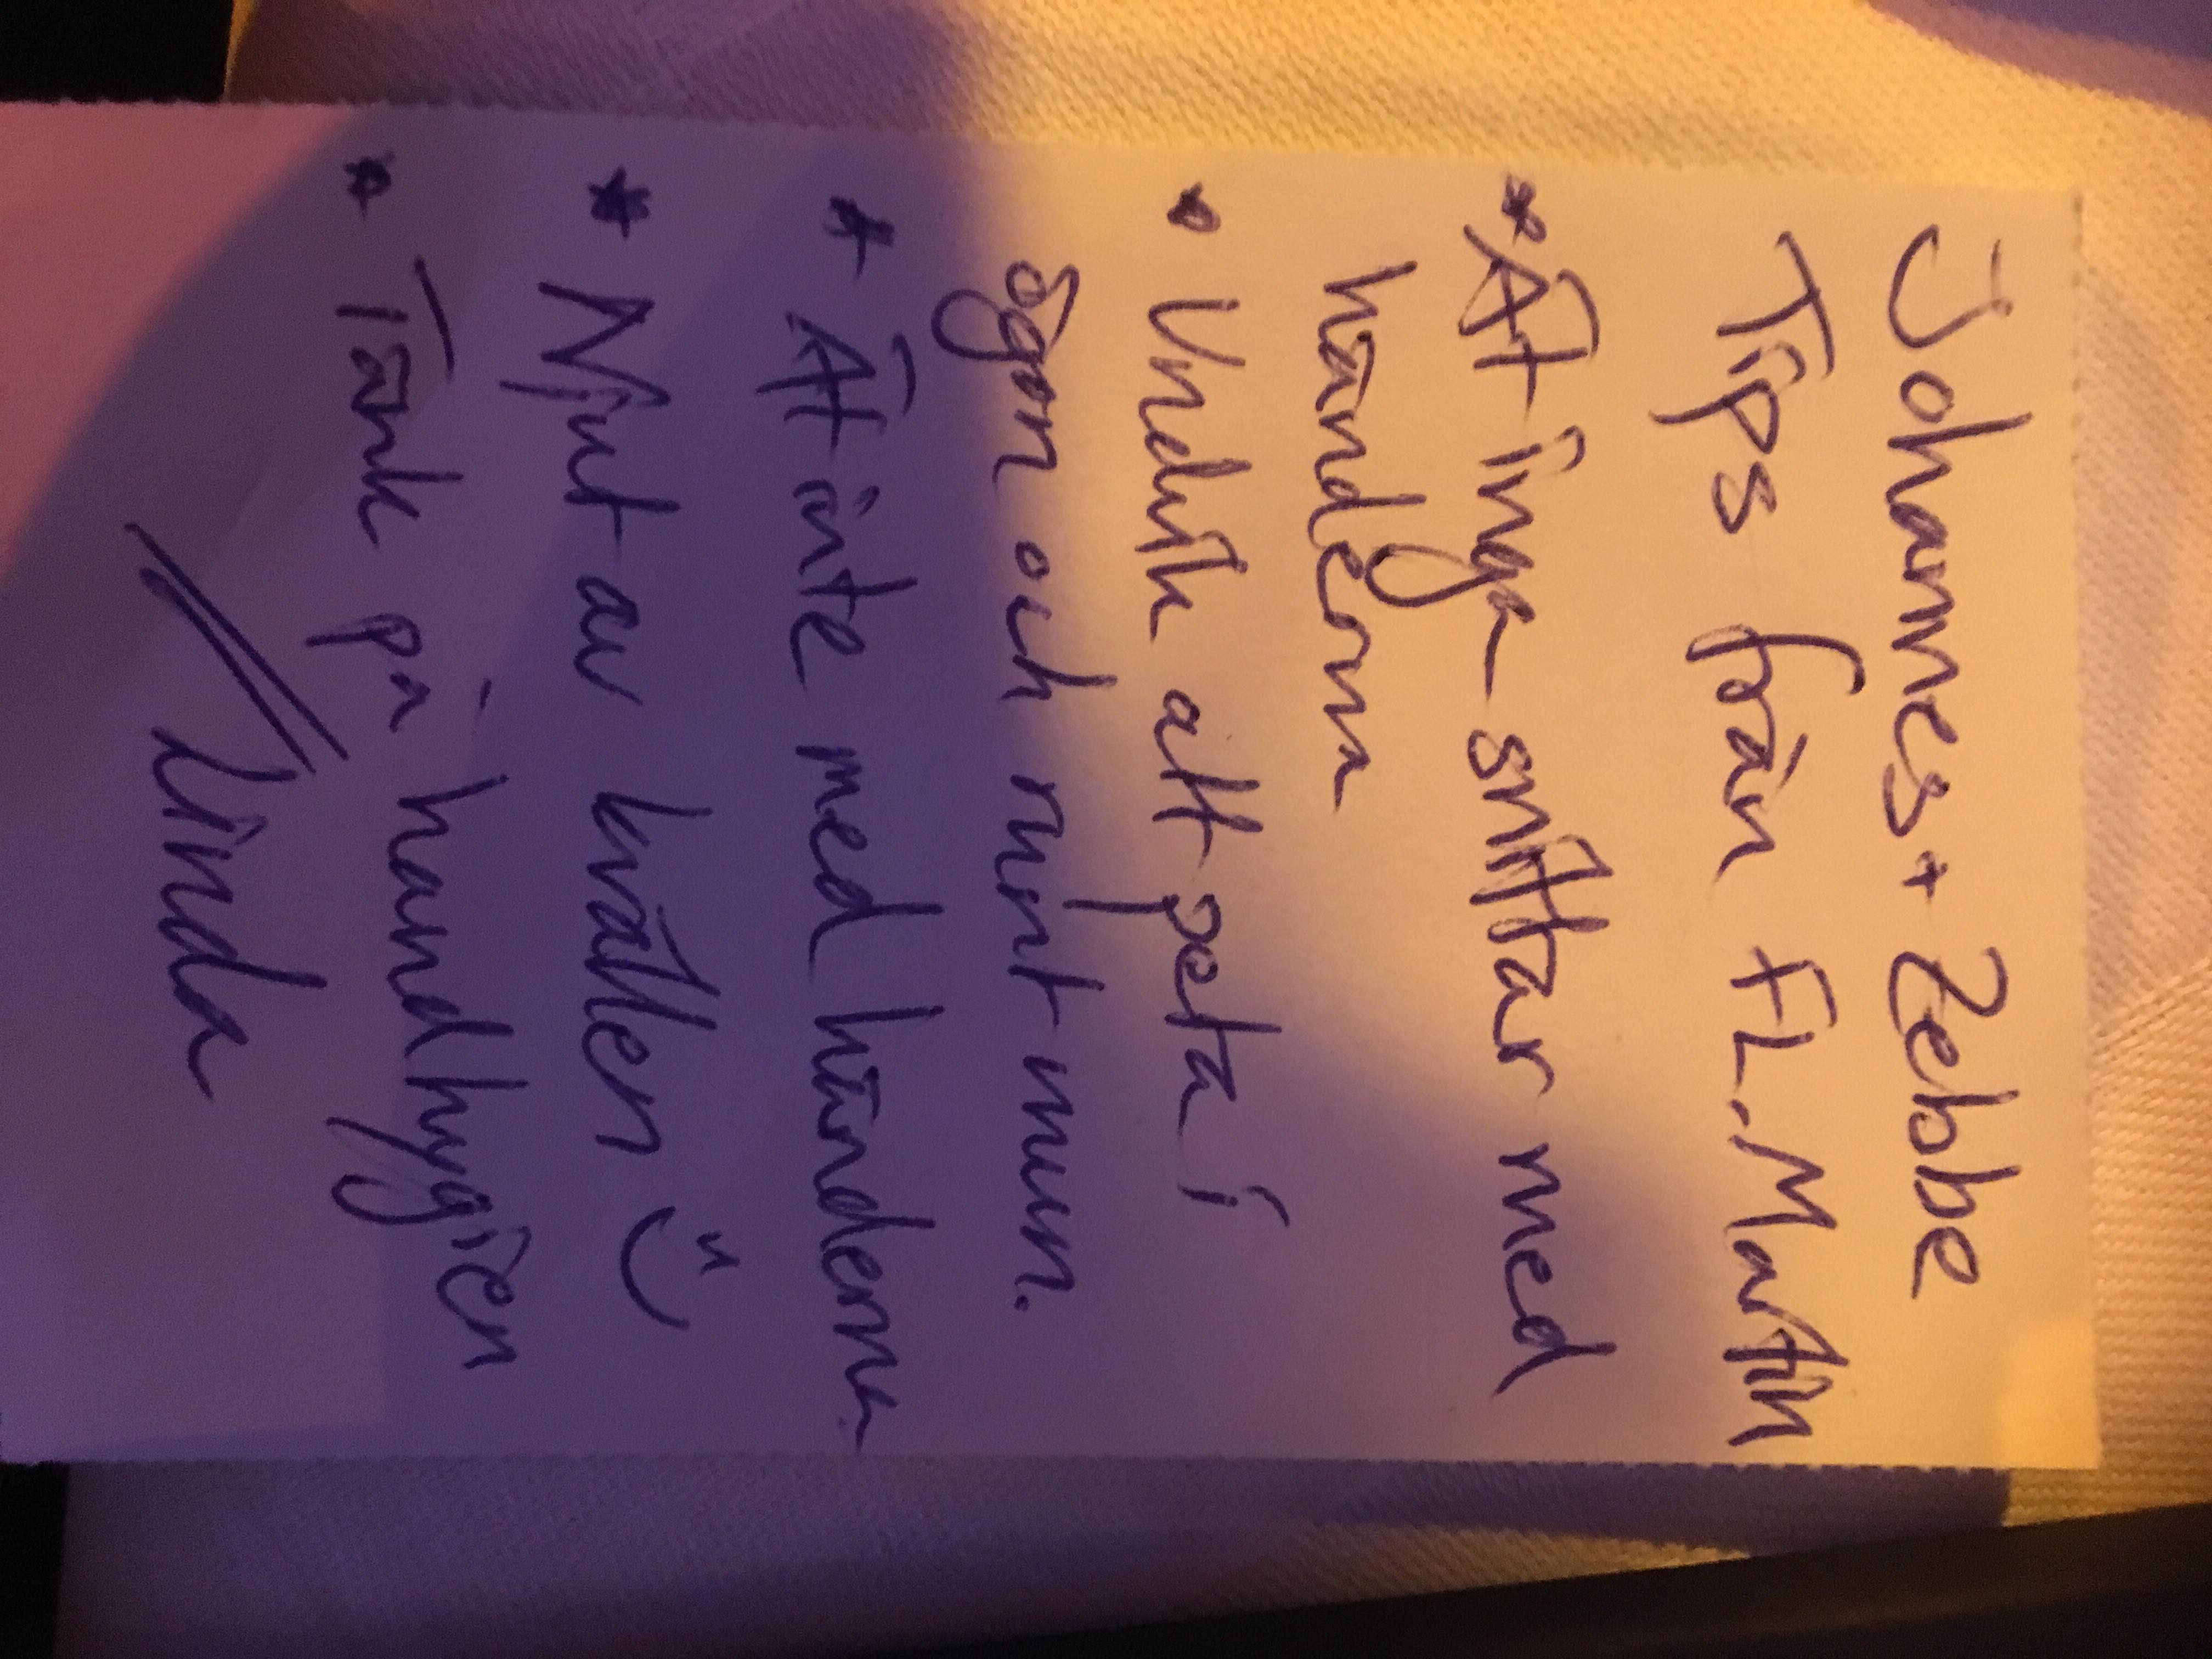 Johannes + Zebbe
Tips från FL-Martin
* Ät inga snittar med
händerna
* Undvik att peta i
ögon och runt mun.
* Ät inte med händerna
* Njut av kvällen :)
* Tänk på handhygien
// Linda